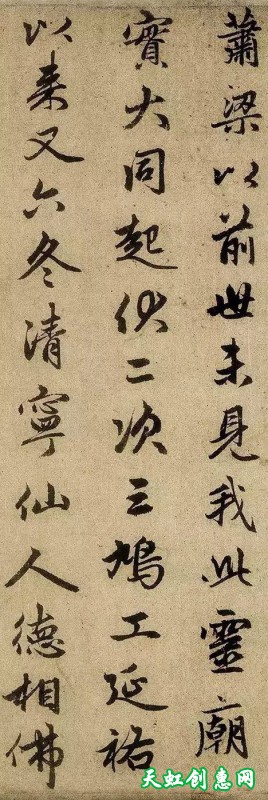 蕭梁以前世未見我此靈廟
實大同起伏二次三鳩工延祐
以来又六冬清寧仙人德相佛
天虹创惠网